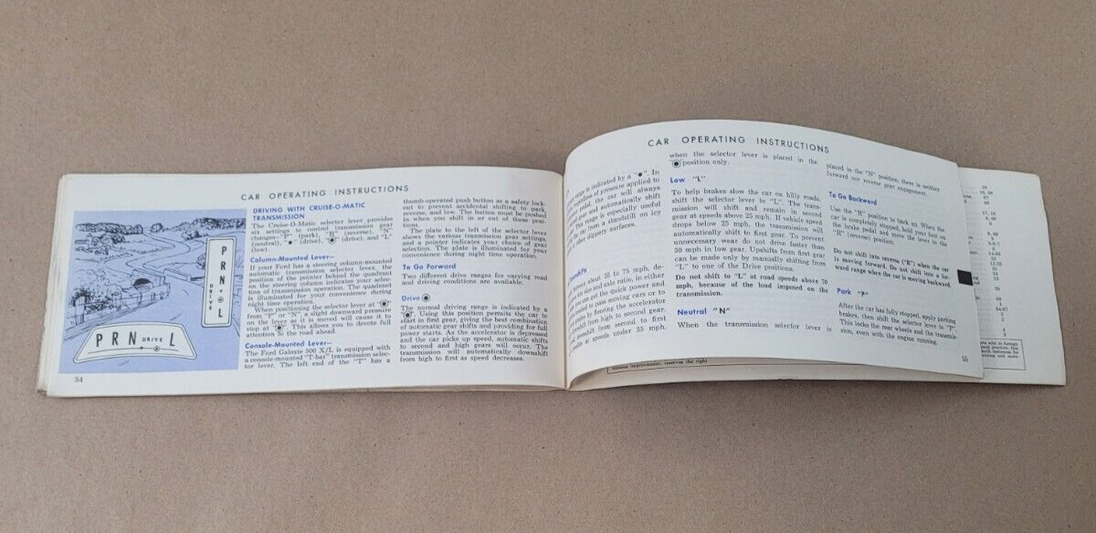 CAR OPERATING INSTRUCTIONS
P
R
N
DRIVE
L
P R N DRIVE L
DRIVING WITH CRUISE-O-MATIC
TRANSMISSION
The Cruise-O-Matic selector lever provides
six settings to control transmission gear
changes—"P" (park), "R" (reverse), "N"
(neutral), "●" (drive), "◉" (drive), and "L"
(low)
Column-Mounted Lever—
If your Ford has a steering column-mounted
automatic transmission selector lever, the
position of the pointer behind the quadrant
on the steering column indicates your selec-
tion of transmission operation. The quadrant
is illuminated for your convenience during
night time operation.
When positioning the selector lever at "◉"
from "P" or "N", a slight downward pressure
on the lever as it is moved will cause it to
stop at "◉". This allows you to devote full
attention to the road ahead.
Console-Mounted Lever—
The Ford Galaxie 500 X/L is equipped with
a console-mounted "T-bar" transmission selec-
tor lever. The left end of the "T" has a
54
thumb-operated push button as a safety lock-
out to prevent accidental shifting to park,
reverse, and low. The button must be pushed
in when you shift in or out of these posi-
tions.
The plate to the left of the selector lever
shows the various transmission gear settings,
and a pointer indicates your choice of gear
selection. The plate is illuminated for your
convenience during night time operation.
To Go Forward
Two different drive ranges for varying road
and driving conditions are available.
Drive ◉
The normal driving range is indicated by a
"◉". Using this position permits the car to
start in first gear, giving the best combination
of automatic gear shifts and providing for full
power starts. As the accelerator is depressed
and the car picks up speed, automatic shifts
to second and high gears will occur. The
transmission will automatically downshift
from high to first as speed decreases.
CAR OPERATING INSTRUCTIONS
range is indicated by a "●". In
of pressure applied to
the car will always
gear and automatically shift
This range is especially useful
from a standstill on icy
other slippery surfaces.
about 35 to 75 mph, de-
and axle ratio, in either
can get the quick power and
to pass moving cars or to
by forcing the accelerator
from high to second gear.
from second to first
at speeds under 35 mph.
when the selector lever is placed in the
"◉" position only.
Low "L"
To help brakes slow the car on hilly roads,
shift the selector lever to "L". The trans-
mission will shift and remain in second
gear at speeds above 25 mph. If vehicle speed
drops below 25 mph, the transmission will
automatically shift to first gear. To prevent
unnecessary wear do not drive faster than
30 mph in low gear. Upshifts from first gear
can be made only by manually shifting from
"L" to one of the Drive positions.
Do not shift to "L" at road speeds above 70
mph, because of the load imposed on the
transmission.
Neutral "N"
When the transmission selector lever is
placed in the "N" position, there is neither
forward nor reverse gear engagement.
To Go Backward
Use the "R" position to back up. When the
car is completely stopped, hold your foot on
the brake pedal and move the lever to the
"R" (reverse) position.
Do not shift into reverse ("R") when the car
is moving forward. Do not shift into a for-
ward range when the car is moving backward.
Park "P"
After the car has fully stopped, apply parking
brakes, then shift the selector lever in "P".
This locks the rear wheels and the transmis-
sion, even with the engine running.
55
reserves the right